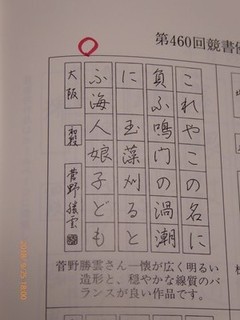 第460回競書
これやこの名に
負ふ鳴門の渦潮
に 玉藻刈ると
ふ海人娘子ども
大阪 菅野勝雲
菅野勝雲さん―懐が広く明るい
造形と、穏やかな線質のバ
ランスが良い作品です。